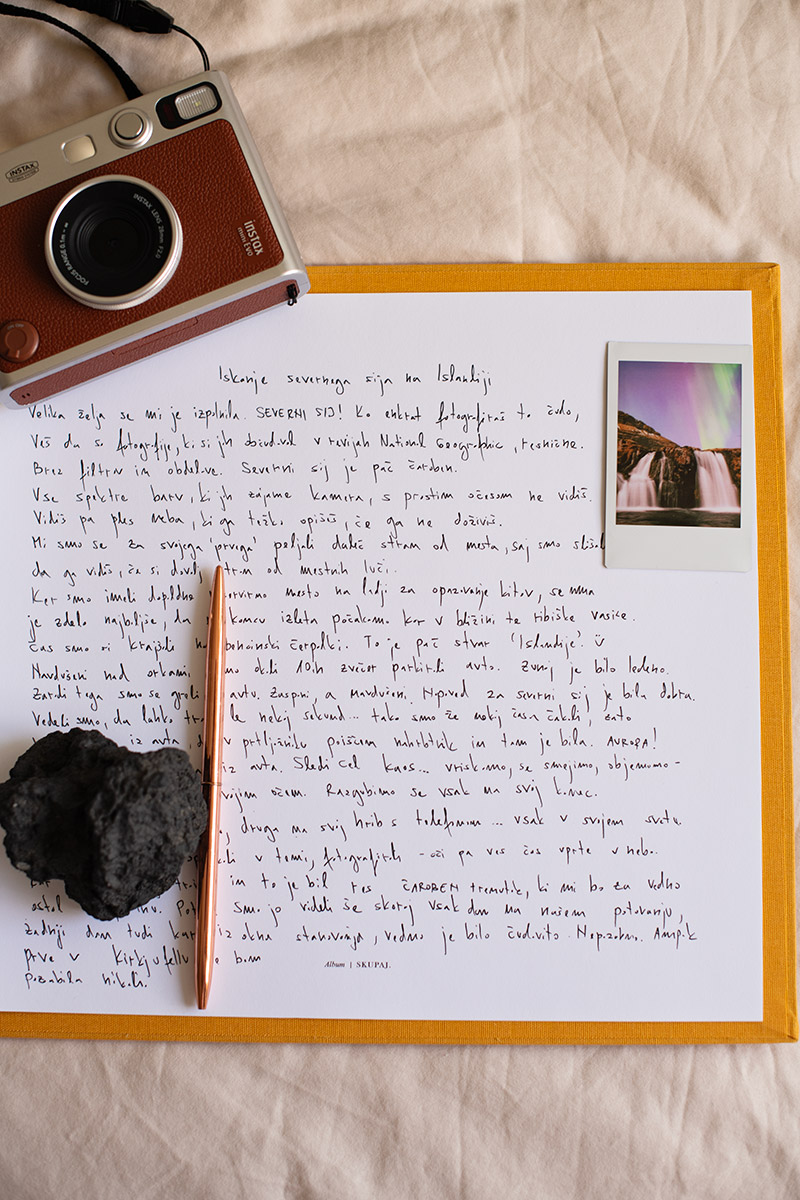 INSTAX
INSTAX LENS 28mm F2.0
FOCUS RANGE 0.1m - ∞
instax
mini Evo
Iskanje severnega sija na Islandiji
Velika želja se mi je izpolnila. SEVERNI SIJ! Ko enkrat fotografiraš to čudo,
veš da so fotografije, ki si jih občudoval v revijah National Geographic, resnične.
Brez filtrov in obdelave. Severni sij je pač čaroben.
Vse spektre barv, ki jih zajame kamera, s prostim očesom ne vidiš.
Vidiš pa ples neba, ki ga težko opišeš, če ga ne doživiš.
Mi smo se za svojega 'prvega' peljali daleč stran od mesta, saj smo
da ga vidiš, če si dovolj od mestnih luči.
Ker smo imeli mesto na ladji za opazovanje kitov, se nama
je zdelo najboljše, da izleta počakamo kar v bližini te ribiške vasice.
Čas smo si krajšali na bencinski črpalki. To je pač stvar 'Islandije'.
Navdušeni nad orkami, okoli 10ih zvečer parkirali avto. Zunaj je bilo ledeno.
Zaradi tega smo se greli avtu. Zaspani, a navdušeni. Napoved za severni sij je bila dobra.
Vedeli smo, da lahko le nekaj sekund... tako smo že nekaj časa čakali, zato
iz avta, v prtljažniku poiščem nahrbtnik in tam je bila. AVRORA!
iz avta. Sledi cel kaos... vriskamo, se smejimo, objemamo -
očem. Razgubimo se vsak na svoj konec.
druga na svoj hrib s telefonom... vsak v svojem svetu.
v temi, fotografirali - oči pa ves čas uprte v nebo.
in to je bil res ČAROBEN trenutek, ki mi bo za vedno
ostal smo jo videli še skoraj vsak dan na našem potovanju,
zadnji dan tudi iz okna stanovanja, vedno je bilo čudovito. Nepozabno. Ampak
prve v Kirkjufellu ne bom
pozabila nikoli.
Album | SKUPAJ.